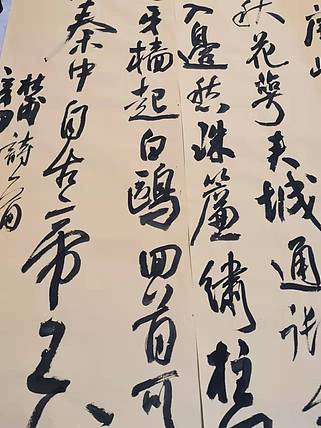 秋花萼夾城通御
入邊愁珠簾繡柱
牙檣起白鷗回首可
秦中自古帝王
杜甫詩一首